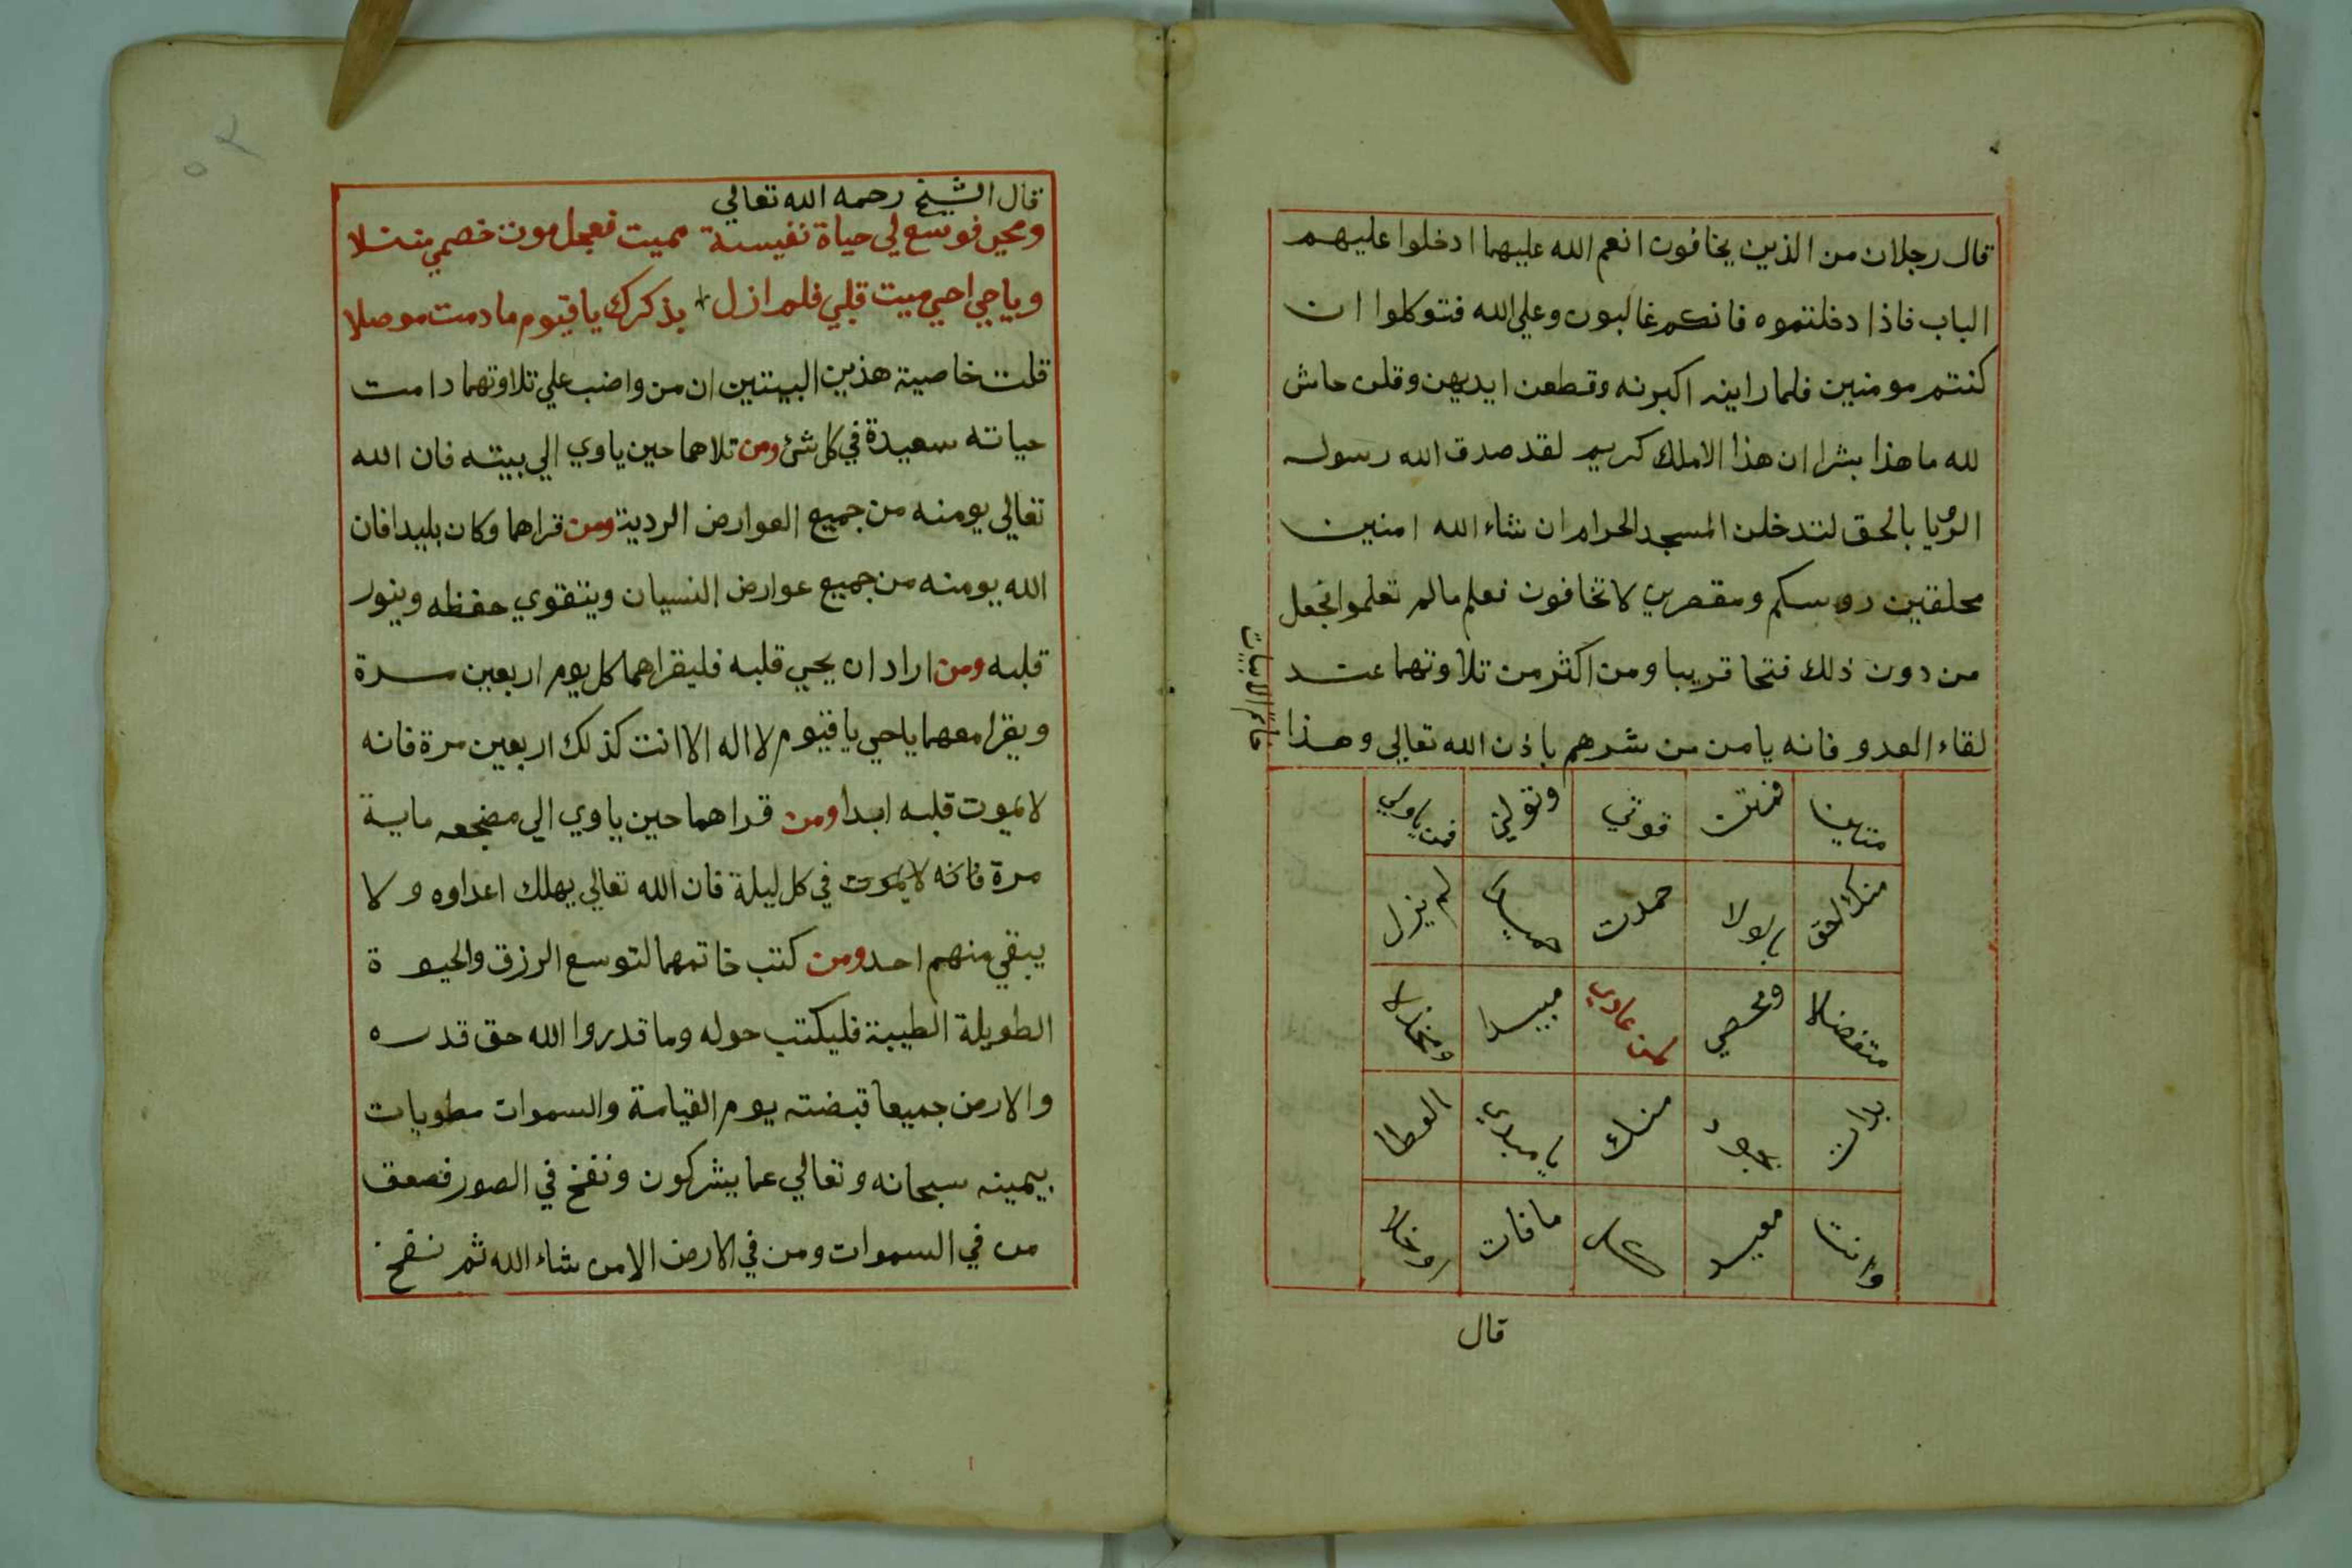 قال رجلان من الذين يخافون انعم الله عليهما ادخلوا عليهم
الباب فاذا دخلتموه فانكم غالبون وعلي الله فتوكلوا ان
كنتم مومنين فلما راينه اكبرنه وقطعن ايديهن وقلن حاش
لله ما هذا بشرا ان هذا الا ملك كريم لقد صدق الله رسوله
الرويا بالحق لتدخلن المسجد الحرام ان شاء الله امنين
محلقين روسكم ومقصرين لا تخافون فعلم مالم تعلموا فجعل
من دون ذلك فتحا قريبا ومن اكثر من تلاوتهما عند
لقاء العدو فانه يامن من شرهم باذن الله تعالي وهذا
خاتم الابيات
متاينا قوتي وتولني
منك الحق يا لولا حمدت لم يزل
متفضلا ومحصي لمن عادي مبيدا ومخذلا
بدات بجود منك يا مبدي العطا
وانت معيد لكل ما فات
قال
٥٢
قال الشيخ رحمه الله تعالي
ومحي فوسع لي حياة نفيسة مميت فعجل موت خصمي منزلا
ويا حي احي ميت قلبي فلم ازل بذكرك يا قيوم ما دمت موصلا
قلت خاصية هذين البيتين ان من واضب علي تلاوتهما دامت
حياته سعيدة في كل شئ ومن تلاهما حين ياوي الي بيته فان الله
تعالي يومنه من جميع العوارض الردية ومن قراهما وكان بليدا فان
الله يومنه من جميع عوارض النسيان ويتقوي حفظه وينور
قلبه ومن اراد ان يحيي قلبه فليقراهما كل يوم اربعين مرة
ويقرا معهما يا حي يا قيوم لا اله الا انت كذلك اربعين مرة فانه
لا يموت قلبه ابدا ومن قراهما حين ياوي الي مضجعه ماية
مرة فانه لا يموت في كل ليلة فان الله تعالي يهلك اعداوه ولا
يبقي منهم احد ومن كتب خاتمهما لتوسع الرزق والحيوة
الطويلة الطيبة فليكتب حوله وما قدروا الله حق قدره
والارض جميعا قبضته يوم القيامة والسموات مطويات
بيمينه سبحانه وتعالي عما يشركون ونفخ في الصور فصعق
من في السموات ومن في الارض الا من شاء الله ثم نفخ